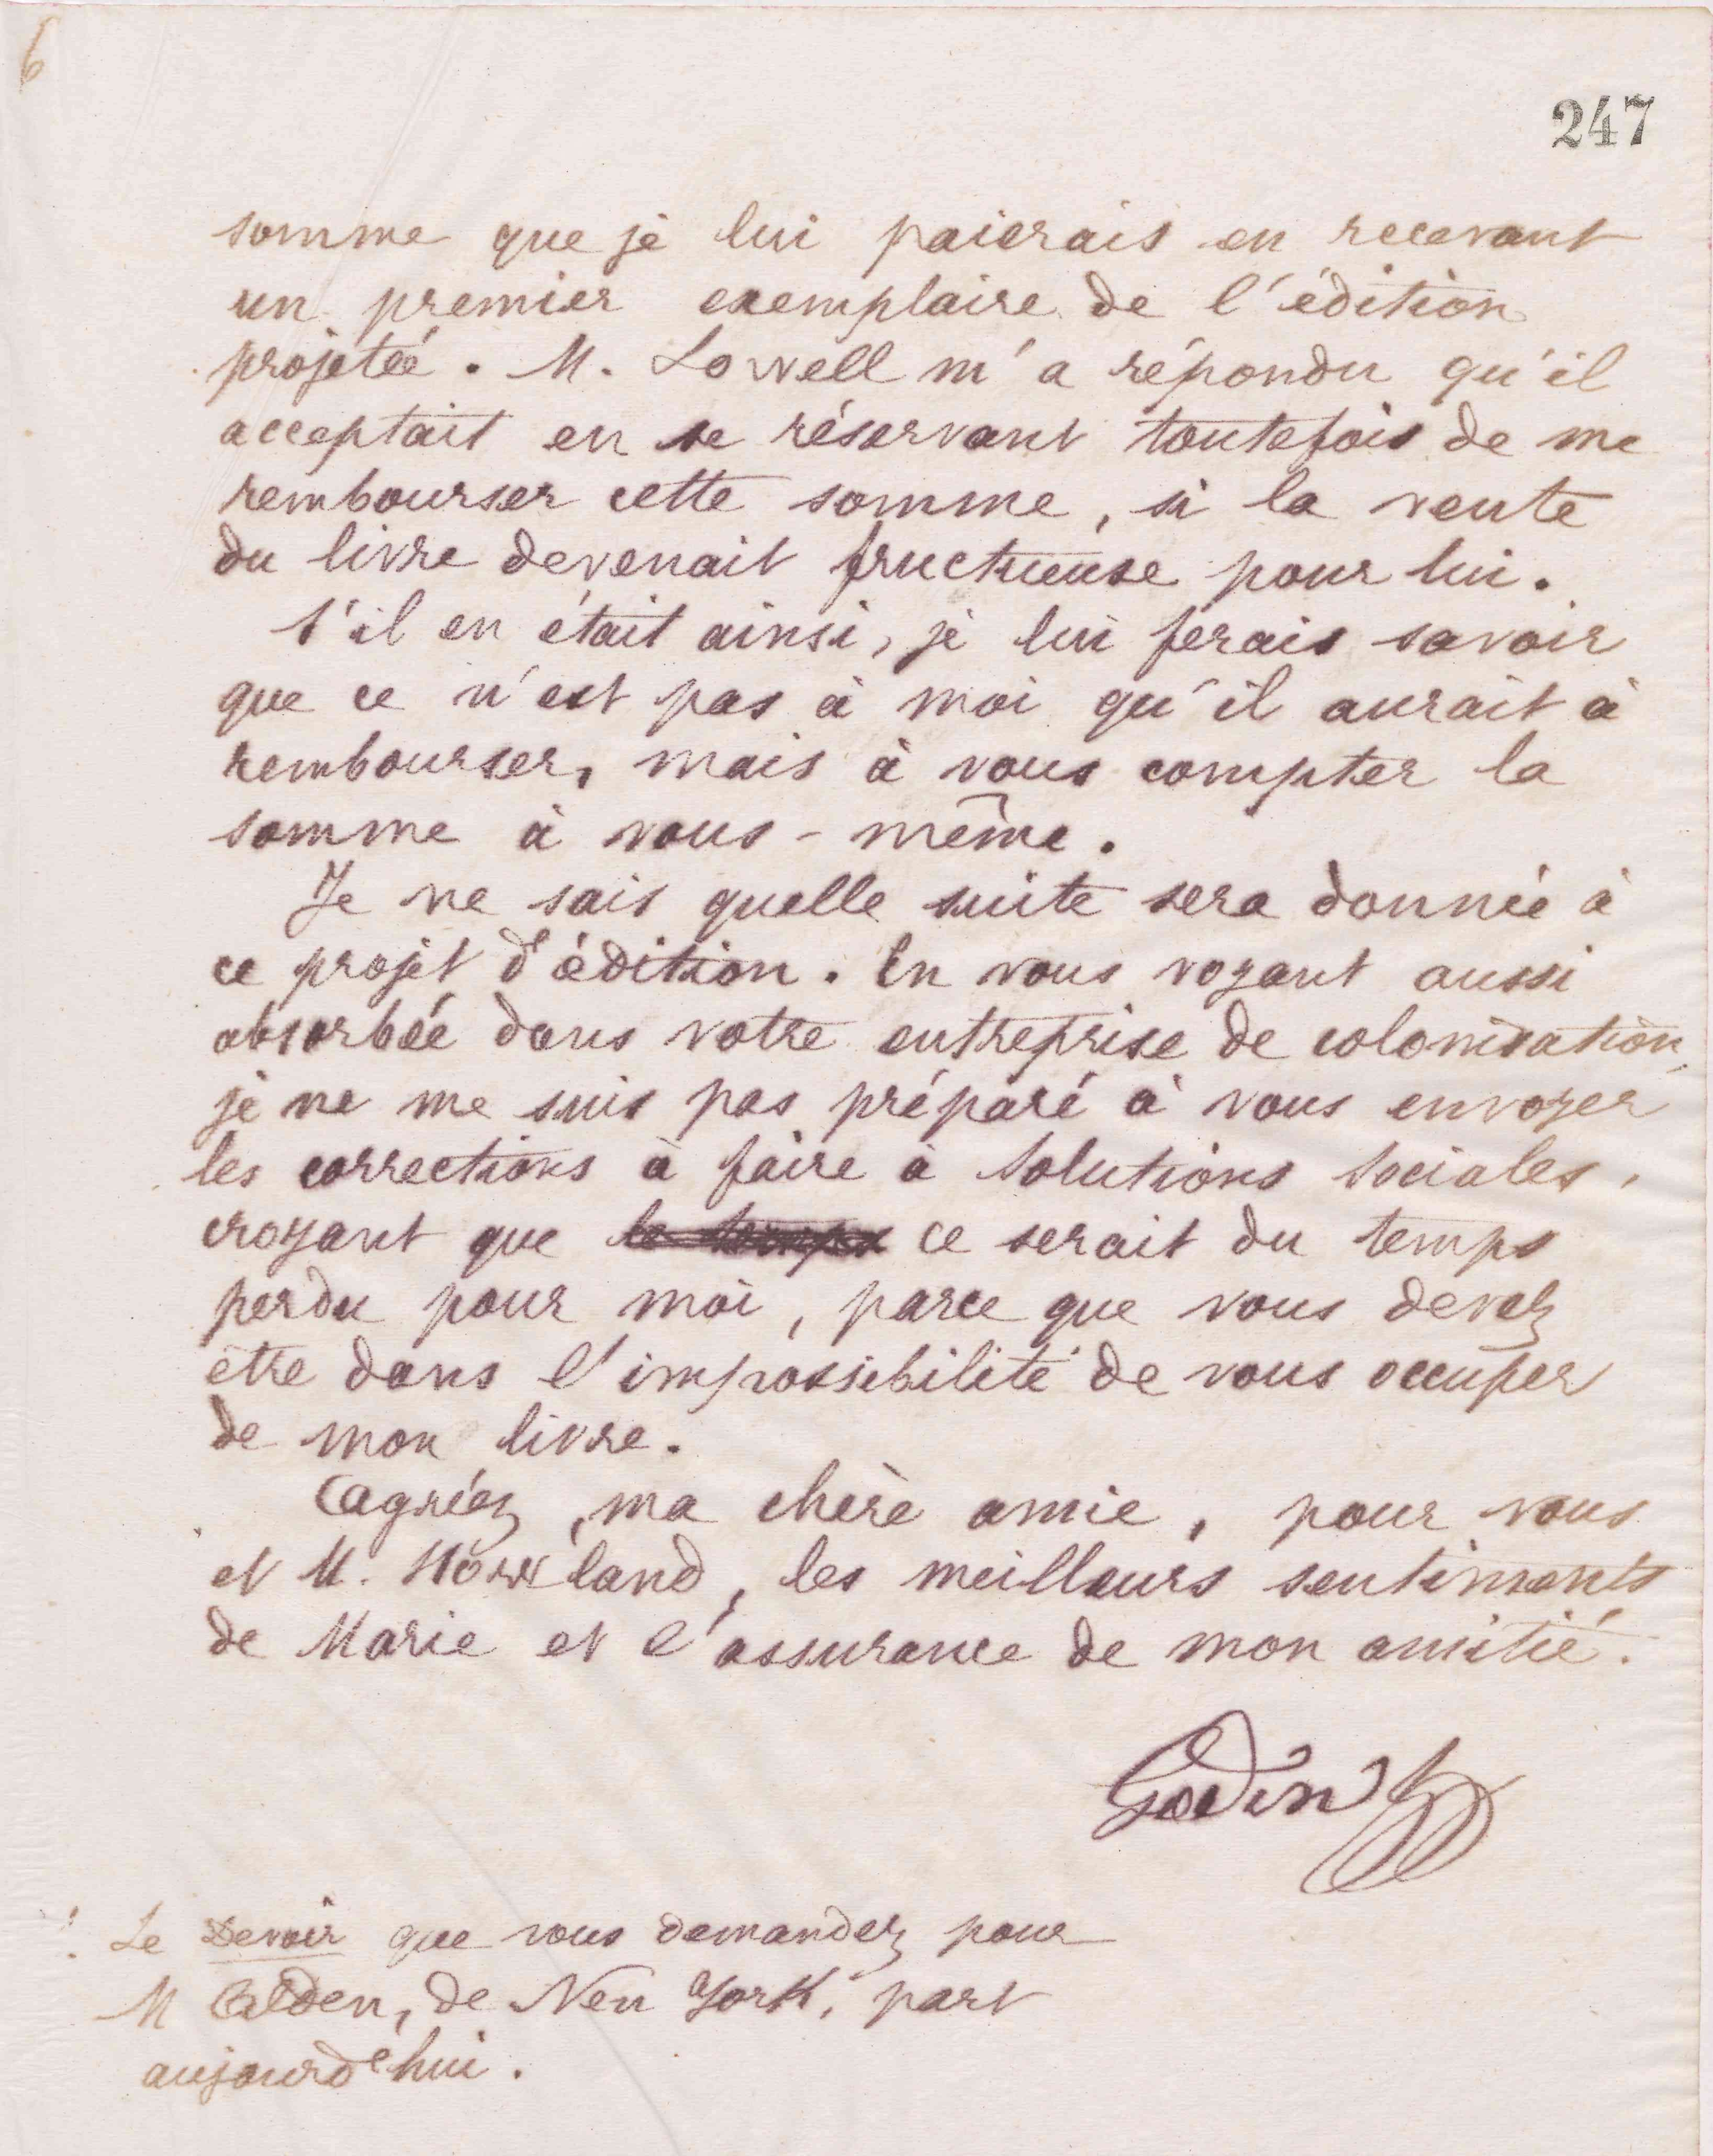 6
247
somme que je lui paierais en recevant
un premier exemplaire de l'édition
projetée. M. Lovell m'a répondu qu'il
acceptait en se réservant toutefois de me
rembourser cette somme, si la vente
du livre devenait fructueuse pour lui.
S'il en était ainsi, je lui ferais savoir
que ce n'est pas à moi qu'il aurait à
rembourser, mais à vous compter la
somme à vous-même.
Je ne sais quelle suite sera donnée à
ce projet d'édition. En vous voyant aussi
absorbée dans votre entreprise de colonisation,
je ne me suis pas préparé à vous envoyer
les corrections à faire à Solutions Sociales,
croyant que le temps ce serait du temps
perdu pour moi, parce que vous devez
être dans l'impossibilité de vous occuper
de mon livre.
Agréez, ma chère amie, pour vous
et M. Howland, les meilleurs sentiments
de Marie et l'assurance de mon amitié.
Godin
Le Devoir que vous demandez pour
M Alden, de New York, part
aujourd'hui.